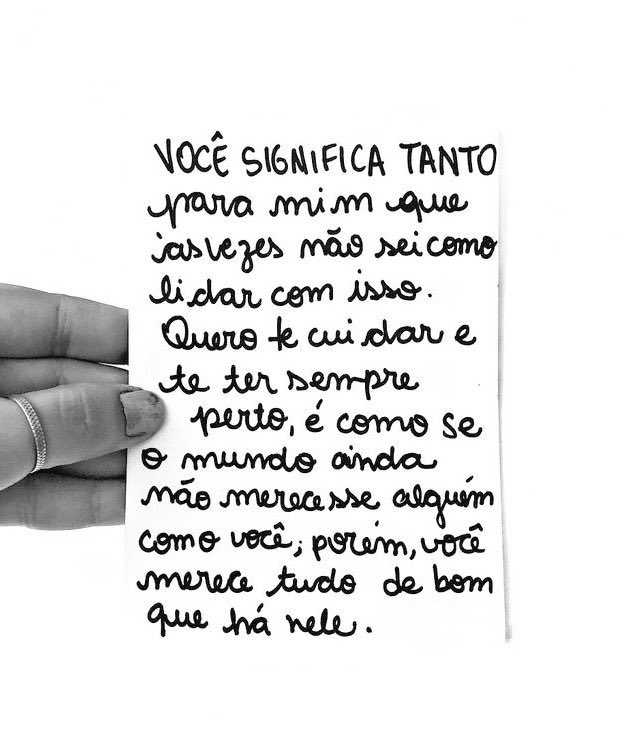 VOCÊ SIGNIFICA TANTO
para mim que
às vezes não sei como
lidar com isso.
Quero te cuidar e
te ter sempre
perto, é como se
o mundo ainda
não merecesse alguém
como você; porém, você
merece tudo de bom
que há nele.